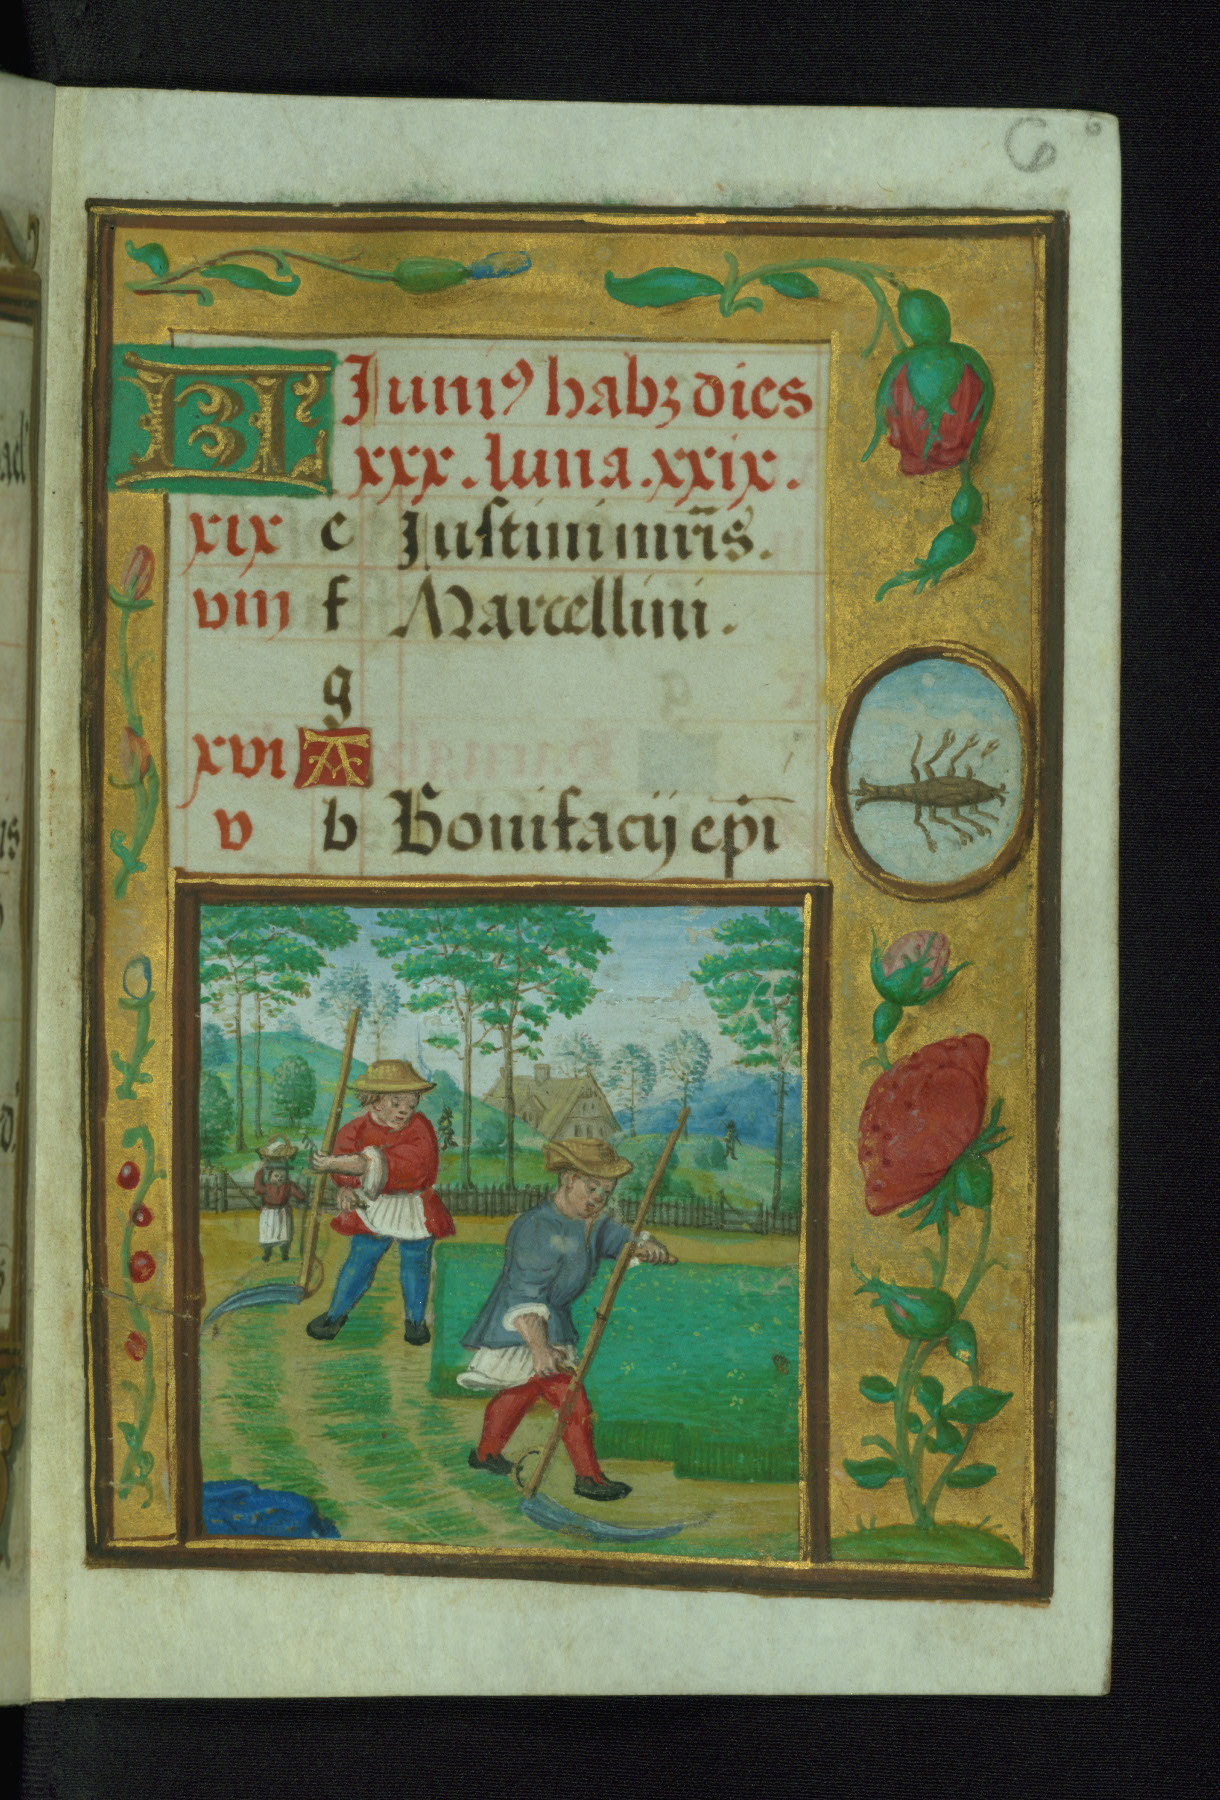 KL Juniꝰ habꝫ dies
xxx. luna. xxix.
xix e Justini mr̄is.
viii f Marcellini.
g
xvi A
v b Bonifacij ep̄i
6